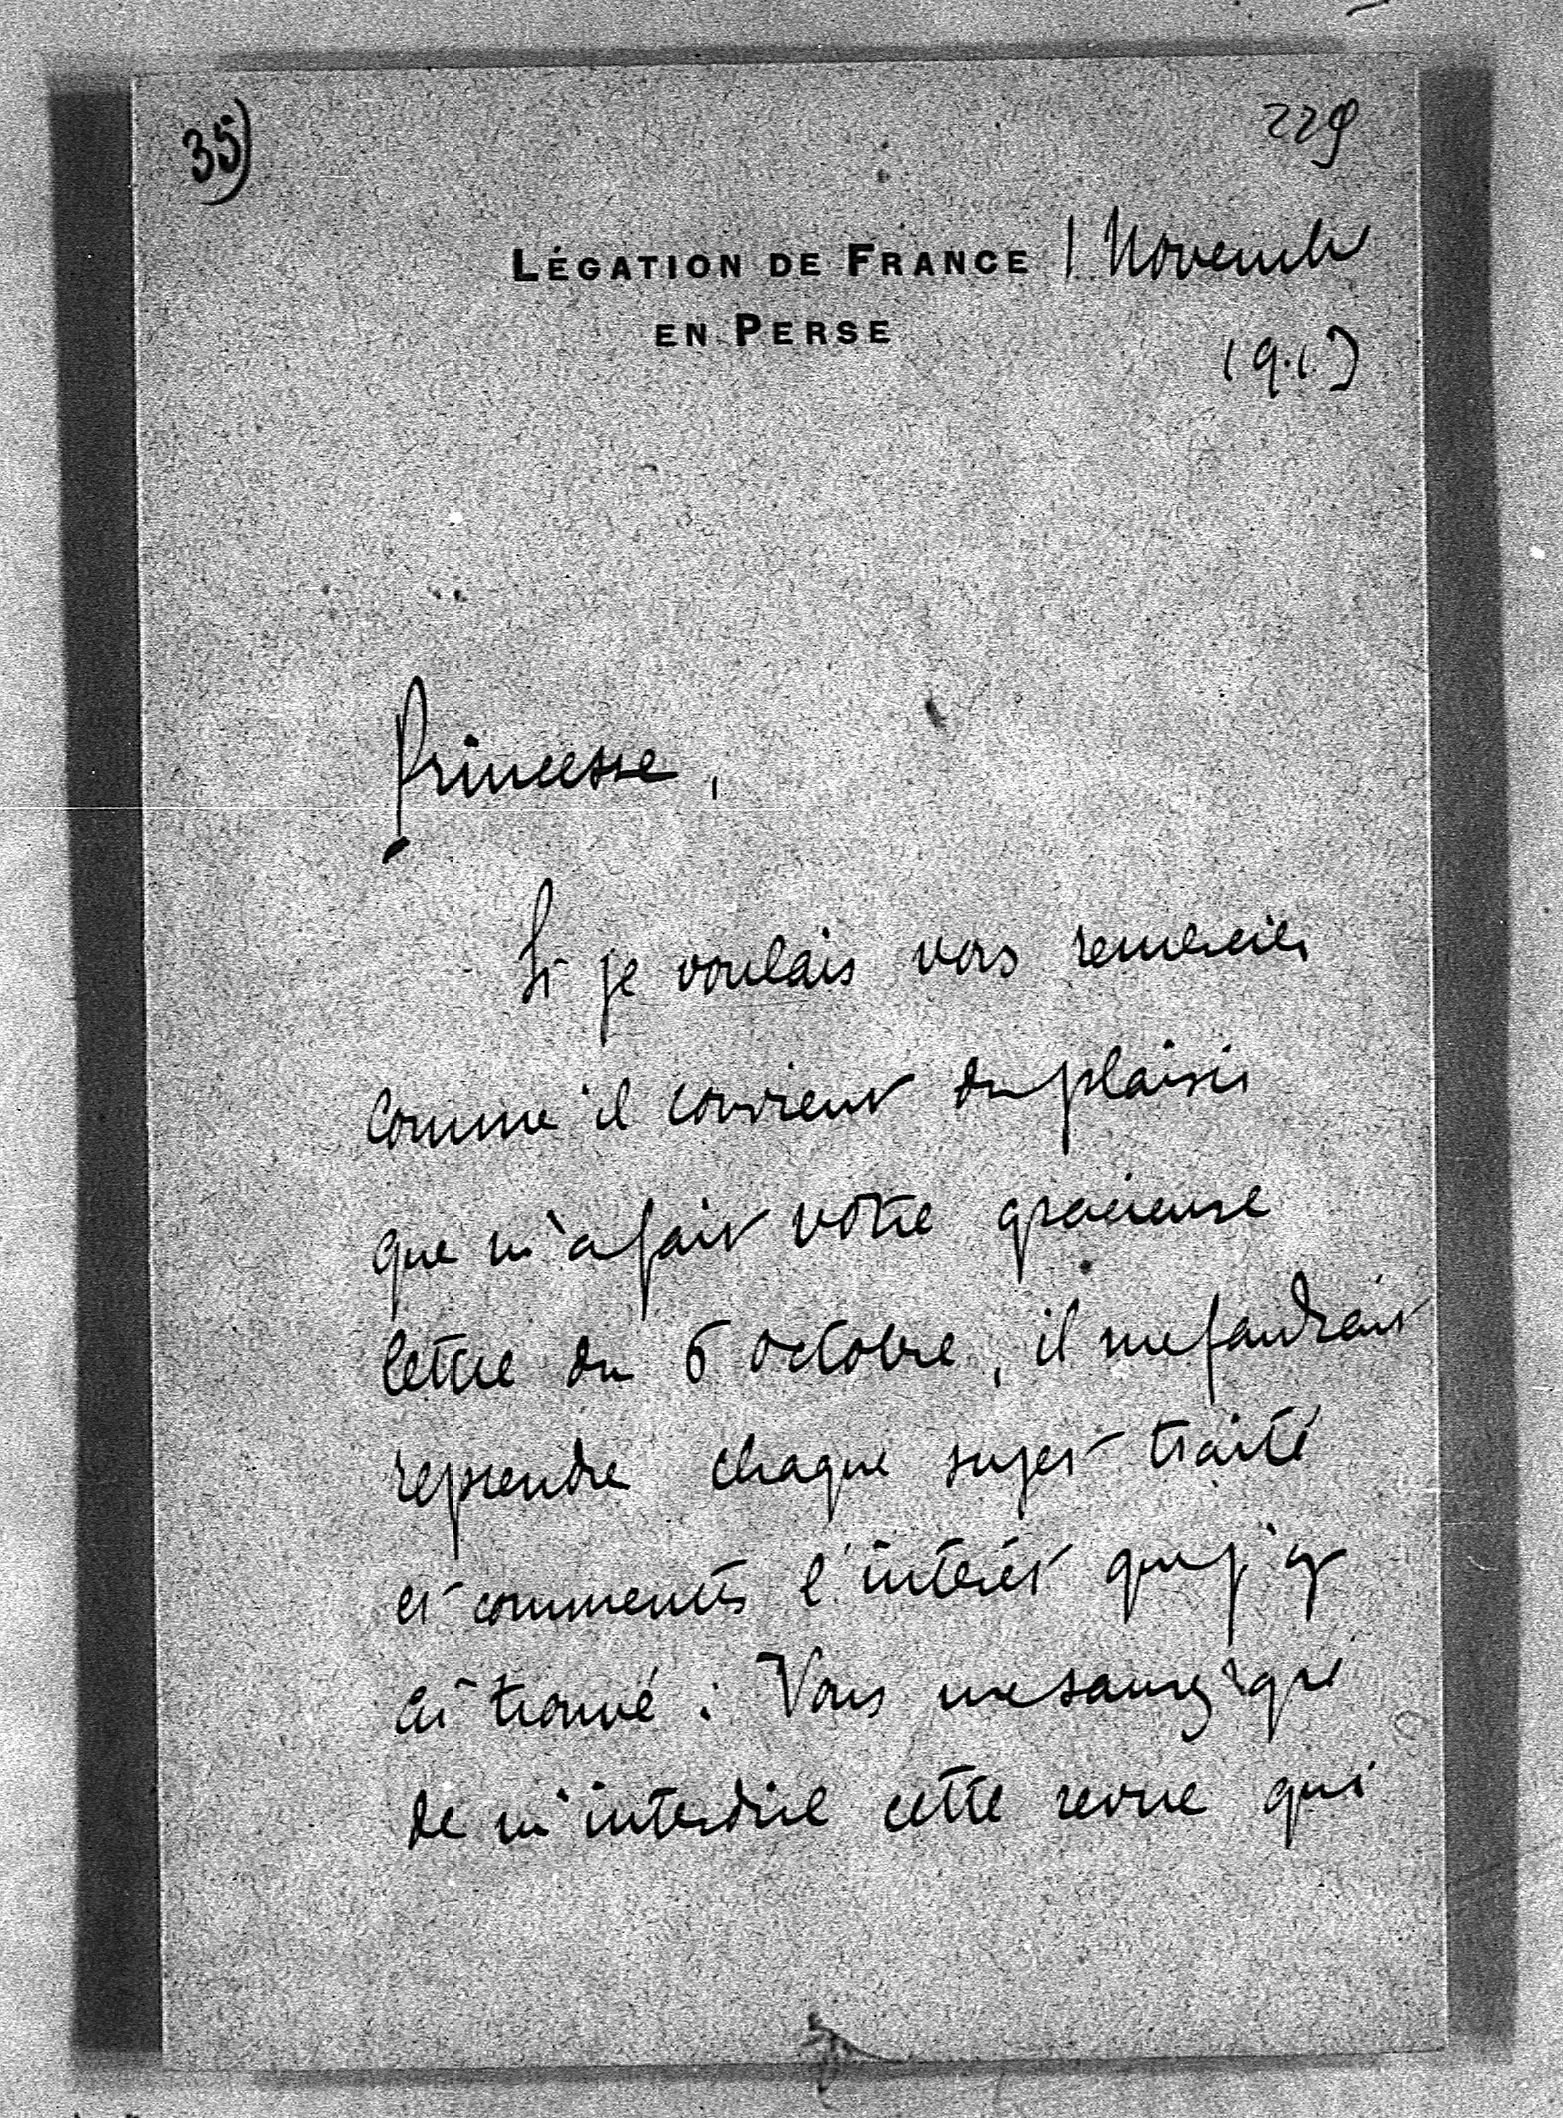 35)
229
LÉGATION DE FRANCE
EN PERSE
1 Novembre
1917
Princesse,
Si je voulais vous remercier
comme il convient du plaisir
que m'a fait votre gracieuse
lettre du 6 octobre, il me faudrait
reprendre chaque sujet traité
et commenter l'intérêt que j'y
ai trouvé : Vous me saurez gré
de m'interdire cette revue qui